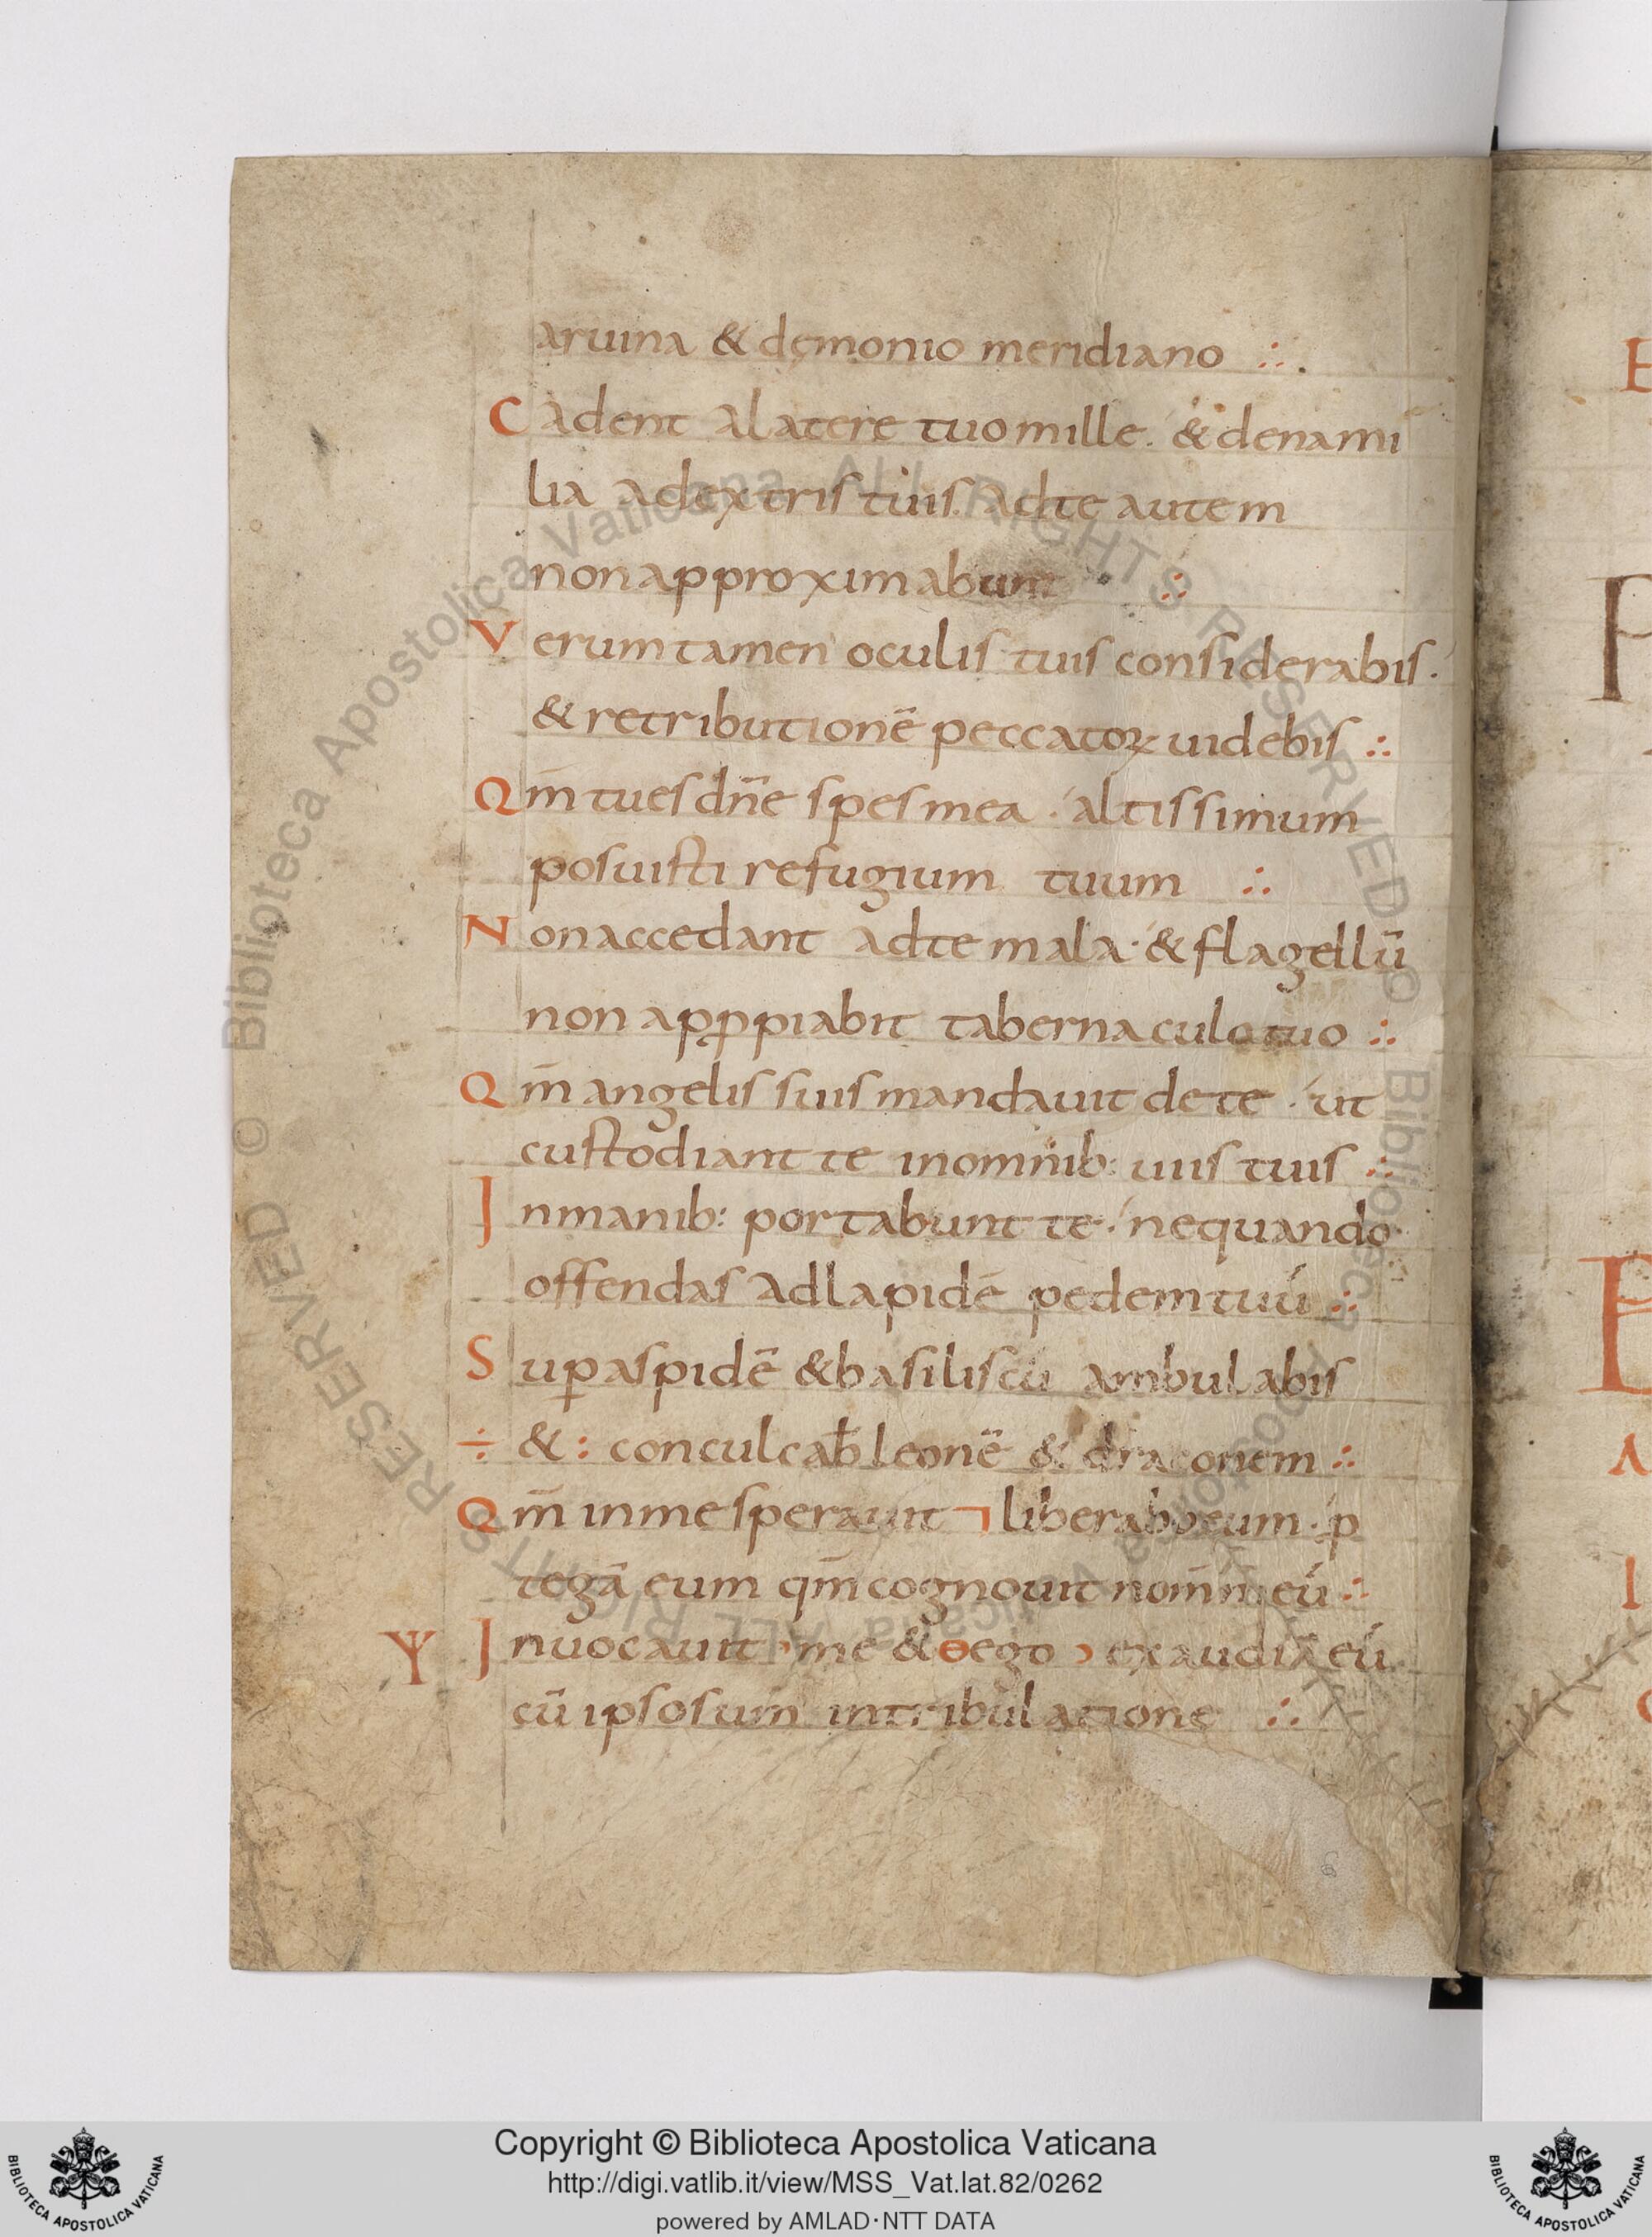 aruina & demonio meridiano ∴.
Cadent alatere tuo mille. & denami
lia adextris tuis. adte autem
non approximabunt ∴
Verumtamen oculis tuis considerabis.
& retributionē peccatoꝝ uidebis ∴
Qm̄ tues dn̄e spes mea. altissimum
posuisti refugium tuum ∴
Non accedant adte mala. & flagellū
non apꝓpiabit tabernaculo tuo ∴
Qm̄ angelis suis mandauit dete. ut
custodiant te inomnib: uiis tuis ∴
Inmanib: portabunt te. nequando
offendas adlapidē pedem tuū ∴
Suꝑ aspidē & basiliscū ambulabis
÷ &: conculcab̄ leonē & draconem ∴
Qm̄ inme sperauit ┐ liberabo eum. p
tegā eum qm̄ cognouit nom̄ meū ∴
Ψ Inuocauit me & ϴ ego exaudiā eū
cū ipso sum intribulatione ∴
Copyright © Biblioteca Apostolica Vaticana
http://digi.vatlib.it/view/MSS_Vat.lat.82/0262
powered by AMLAD·NTT DATA
BIBLIOTECA APOSTOLICA VATICANA
BIBLIOTECA APOSTOLICA VATICANA